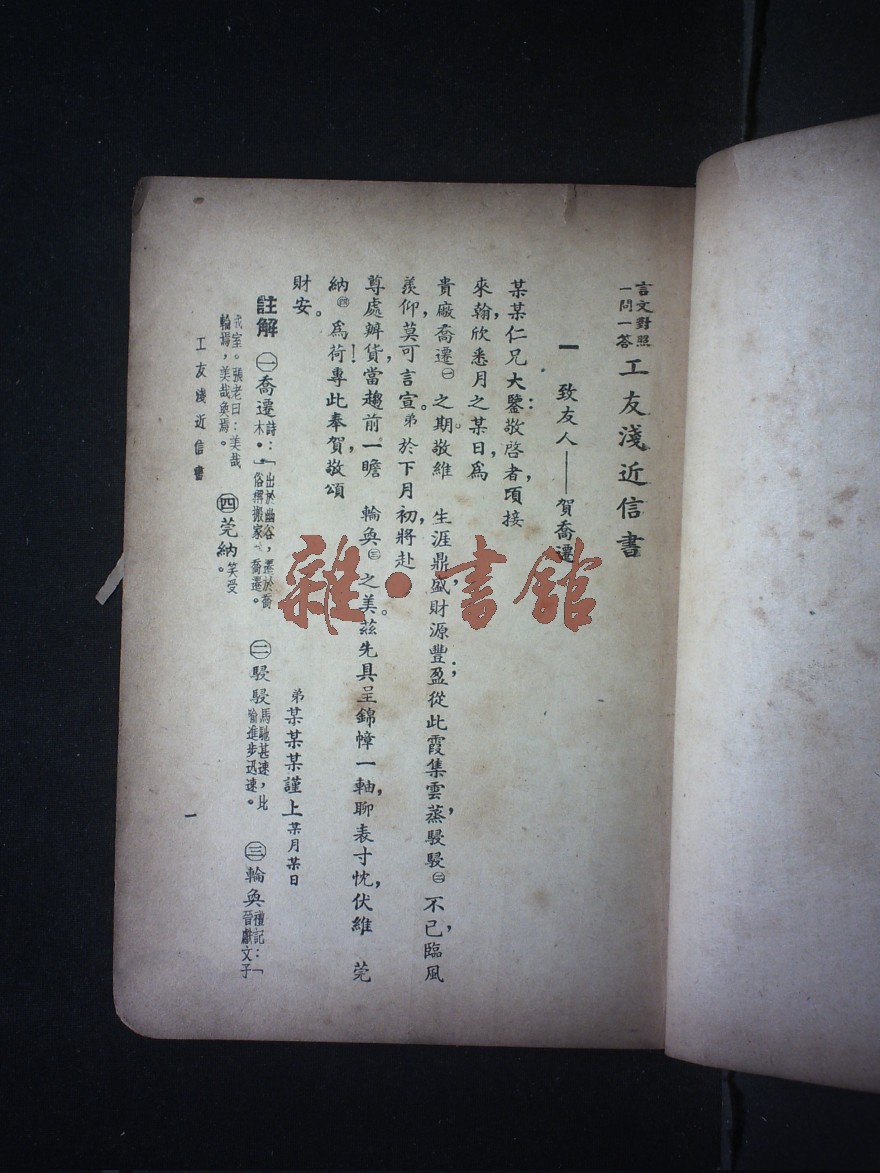 言文對照
一問一答
工友淺近信書
一 致友人——賀喬遷
某某仁兄大鑒：敬啓者，頃接
來翰，欣悉月之某日，爲
貴廠喬遷㊀之期。敬維 生涯鼎盛，財源豐盈；從此霞集雲蒸，駸駸㊁不已，臨風
羨仰，莫可言宣。弟於下月初，將赴
尊處辦貨，當趨前一瞻 輪奐㊂之美。茲先具呈錦幛一軸，聊表寸忱，伏維 莞
納㊃爲荷！專此奉賀，敬頌
財安。
弟某某某謹上 某月某日
註解 ㊀喬遷 詩：「出於幽谷，遷於喬木。」俗稱搬家爲喬遷。 ㊁駸駸 馬馳甚速，比喻進步迅速。 ㊂輪奐 禮記：「晉獻文子
成室。張老曰：美哉輪焉，美哉奐焉。 ㊃莞納 笑受。
工友淺近信書
一
雜·書館